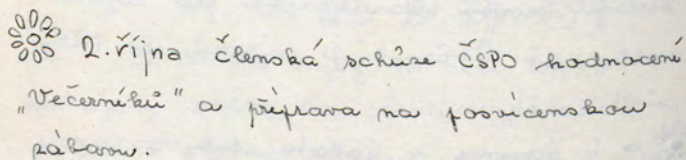 2. října členská schůze ČSPO hodnocení
„Večerníků" a příprava na posvícenskou
zábavu.